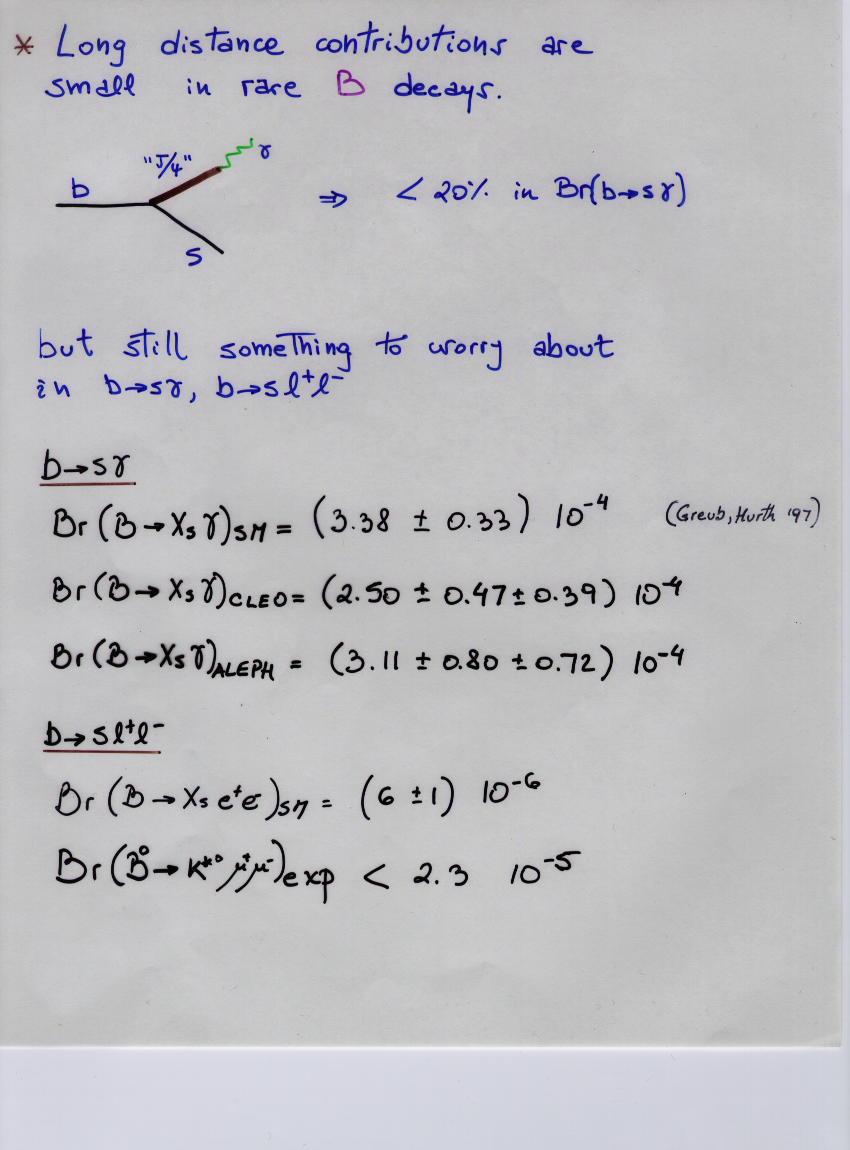 * Long distance contributions are
small in rare B decays.
b "J/ψ" γ
s
⇒ < 20% in Br(b→sγ)
but still something to worry about
in b→sγ, b→sl⁺l⁻
b→sγ
Br (B→Xsγ)SM = (3.38 ± 0.33) 10⁻⁴ (Greub, Hurth '97)
Br (B→Xsγ)CLEO = (2.50 ± 0.47 ± 0.39) 10⁻⁴
Br (B→Xsγ)ALEPH = (3.11 ± 0.80 ± 0.72) 10⁻⁴
b→sl⁺l⁻
Br (B→Xs e⁺e⁻)SM = (6 ± 1) 10⁻⁶
Br (B⁰→K*⁰ μ⁺μ⁻)exp < 2.3 10⁻⁵